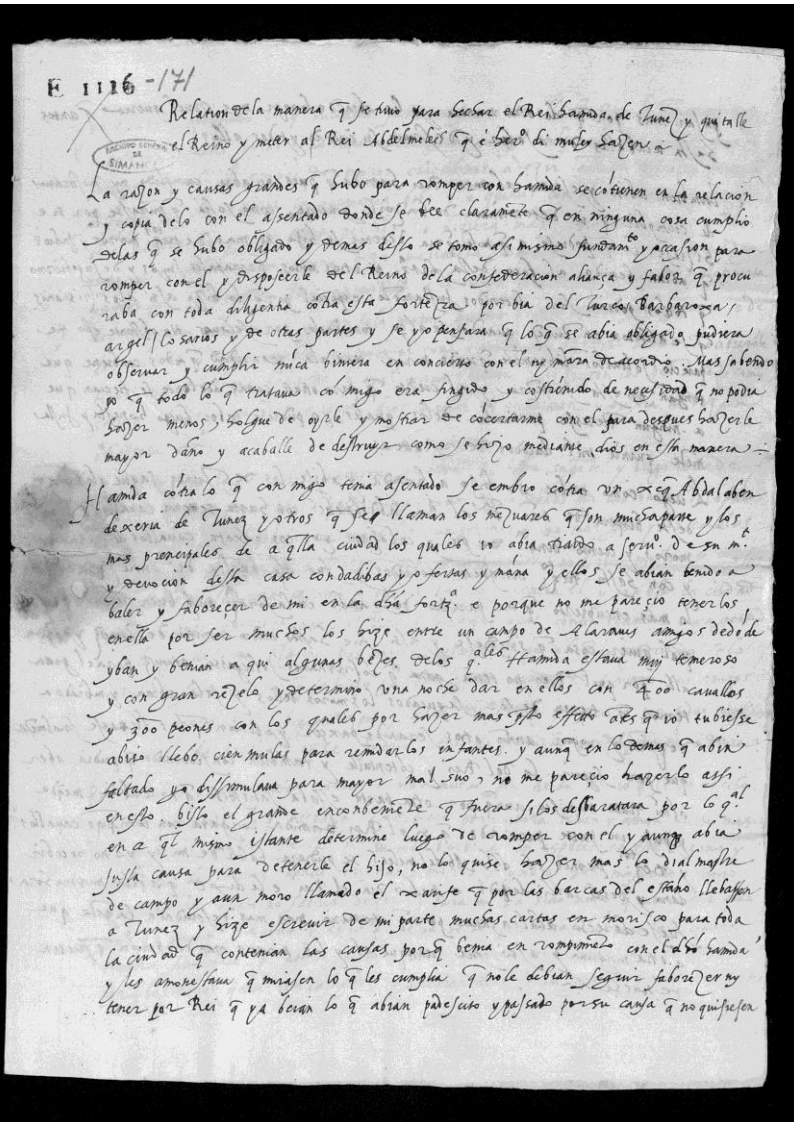 E 1116 -171
Relation de la manera q̃ se tuvo para hechar el Rei hamida de Tunez y quitalle
el Reino y meter al Rei Abdelmelech q̃ è her.º di muley hazen
ARCHIVO GENERAL
DE
SIMANCAS
La razon y causas grandes q̃ hubo para romper con hamida se cõtienen en la relacion
y copia de lo con el assentado donde se vee claramẽte q̃ en ninguna cosa cumplio
de las q̃ se hubo obligado y demas desto se tomo asi mismo fundam.to y occasion para
romper con el y disposeerle del Reino de la confederacion aliança y fabor q̃ procu
raba con toda diligentia cõtra esta fortezza por bia del Turco, Barbaroxa,
argel, cosarios y de otras partes y se yo pensara q̃ lo q̃ se abia obligado pudiera
observar y cumplir nũca biniera en concierto con el ny mãra de acordio. Mas sabendo
yo q̃ todo lo q̃ tratava cõ migo era fingido y costrenido de necesidad q̃ no podia
hazer menos, holgue de oyrle y mostrar de cõcertarme con el para despues hazerle
mayor daño y acaballe de destruyr como se hizo mediante dios en esta manera
Hamida cõtra lo q̃ con migo tenia asentado se embio cõtra un xeq̃ Abdalaben
dexeria de Tunez y otros q̃ se llaman los mezuares q̃ son mucha parte y los
mas prencipales de aq̃lla ciudad los quales io abia traido a seru.º de su m.t
y devocion desta casa con dadibas y ofertas y mãna y ellos se abian tenido a
baler y faborecer de mi en la dha fortz.ª e porque no me parecio tenerlos
en ella por ser muchos los hize entre un campo de Alaraves amigos de dõde
yban y benian a qui algunas bezes, de los q̃ales Hamida estava muy temeroso
y con gran rezelo, y determino una noche dar en ellos con 400 cavallos
y 300 peones con los quales por hazer mas p̃sto effeto ãtes q̃ io tubiesse
abiso llebo cien mulas para remudar los infantes. y aunq̃ en lo demas q̃ abia
faltado yo dissimulava para mayor mal suo, no me parecio hazerlo assi
en esto bisto el grande enconbeniẽte q̃ fuera si los desbaratara por lo q̃al
en aq̃l mismo istante determine luego de romper con el y aunq̃ abia
justa causa para detenerle el hijo, no lo quise hazer mas lo di al mastre
de campo y a un moro llamado el xarife q̃ por las barcas del estaño llebassen
a Tunez y hize escrevir de mi parte muchas cartas en morisco para toda
la ciudad q̃ contenian las causas porq̃ benia en rompimẽto con el dhõ hamida
y les amonestava q̃ mirasen lo q̃ les cumplia q̃ no le debian seguir faborezer ny
tener por Rei q̃ ya beian lo q̃ abian padescito y passado por su causa q̃ no quisiesen